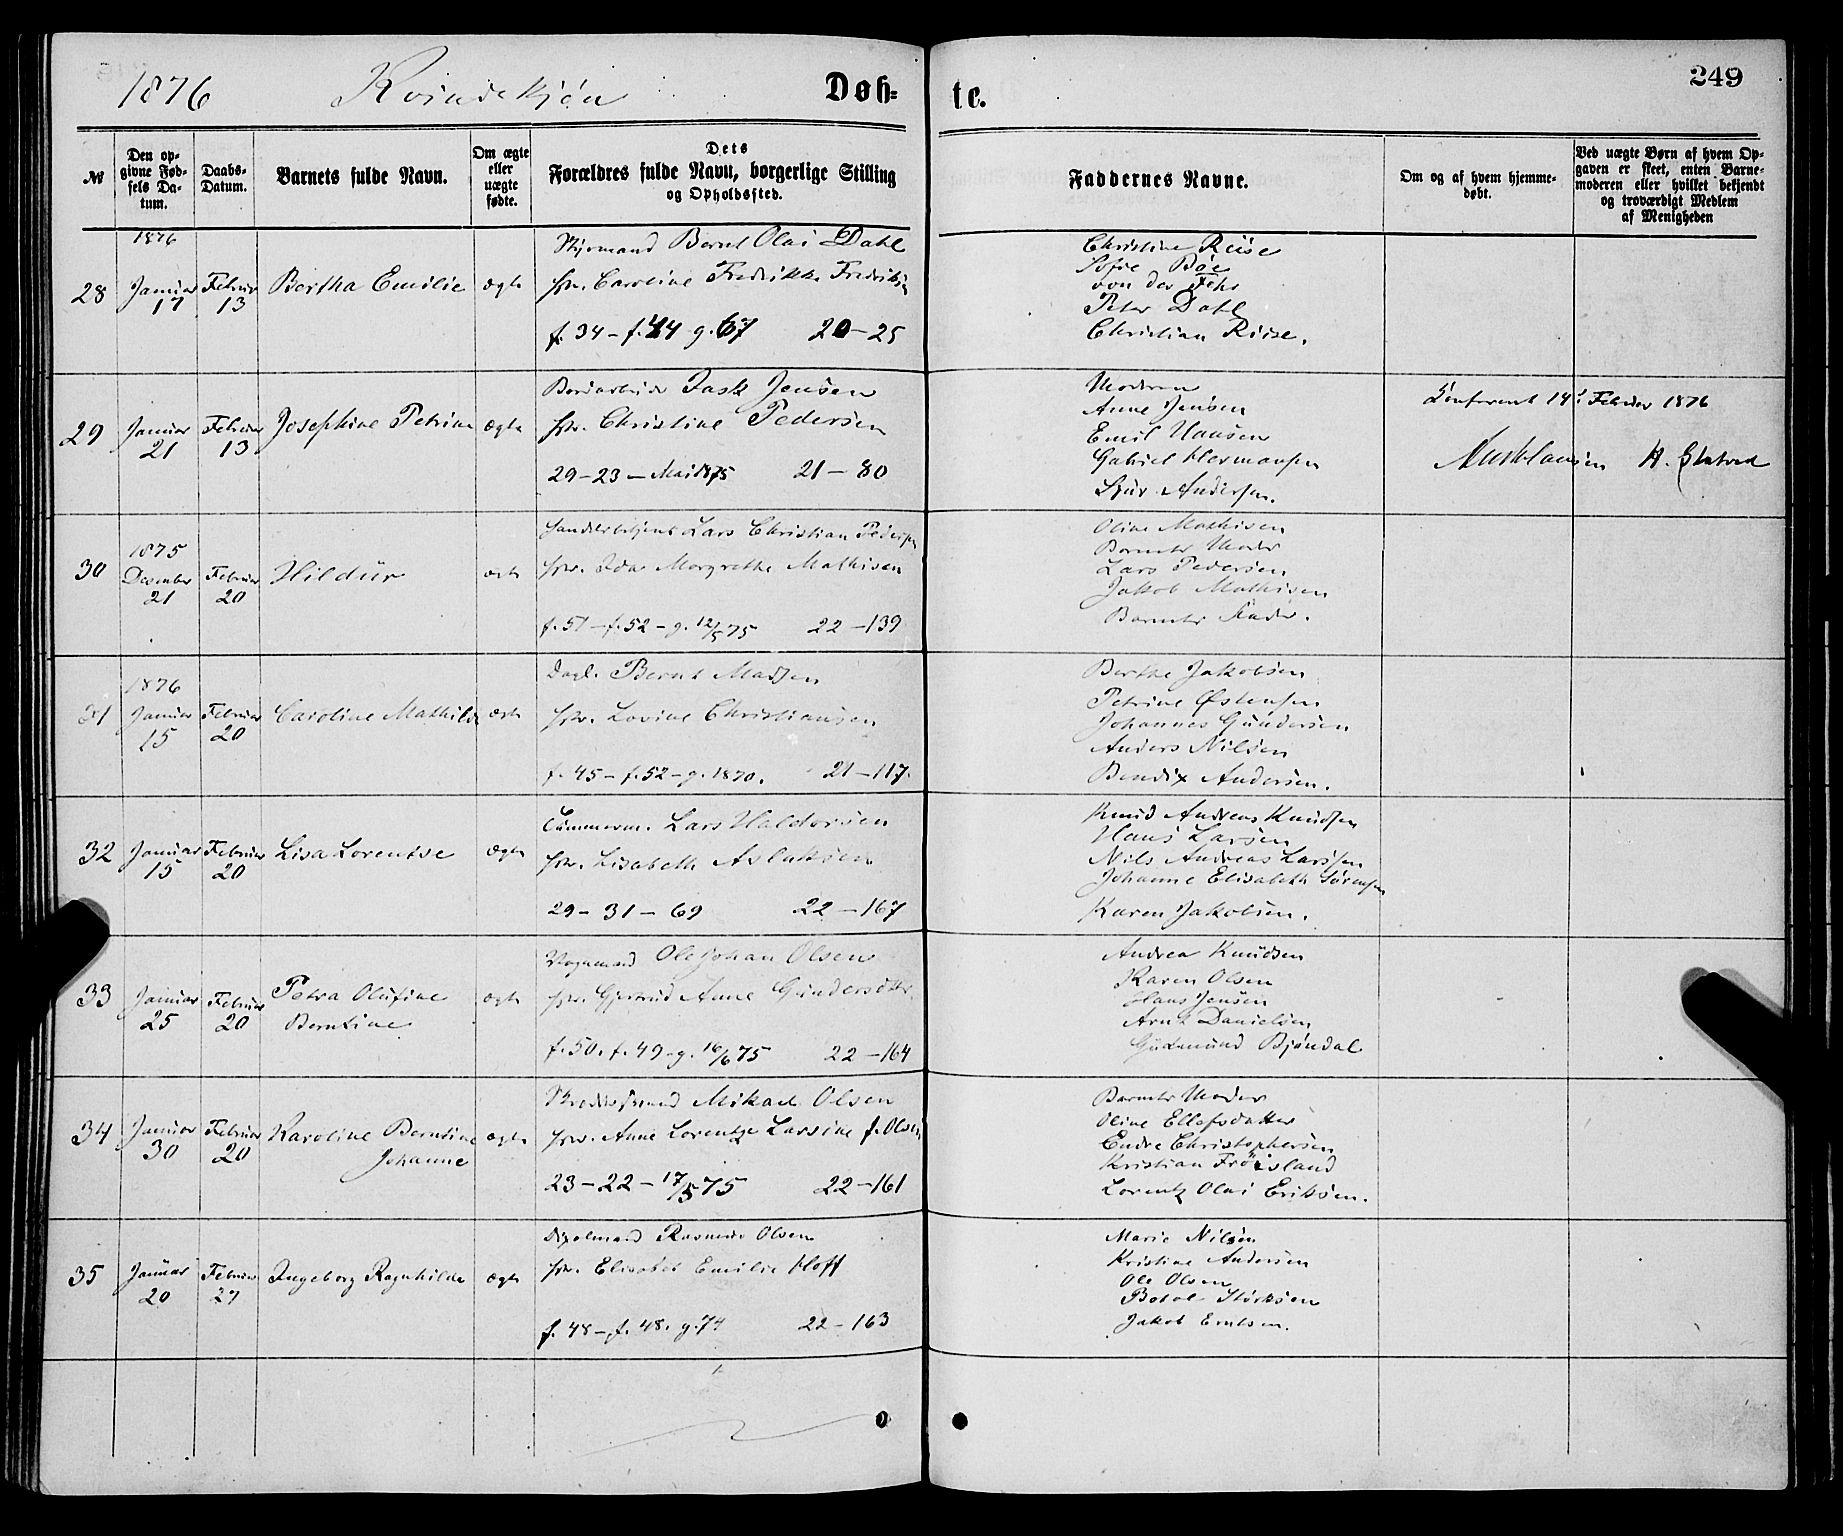 1876 Kvindekjøn Døb- te. 249
No
Den op-
givne Fød-
sels Da-
tum.
Daabs-
Datum.
Barnets fulde Navn.
Om ægte
eller
uægte
fødte.
Dets
Forældres fulde Navn, borgerlige Stilling
og Opholdssted.
Faddernes Navne.
Om og af hvem hjemme-
døbt.
Ved uægte Børn af hvem Op-
gaven er skeet, enten Barne-
moderen eller hvilket bekjendt
og troværdigt Medlem
af Menigheden
28
1876
Januar
17
Februar
13
Bertha Emilie
ægte
Styrmand Bernt Olai Dahl
Caroline Fredrikke Fredriksen
f. 34 - f. 44 g. 67 20-25
Christine Riise
Sofie Bøe
von der Fehr
Peter Dahl
Christian Riise.
29
Januar
21
Februar
13
Josephine Petrine
ægte
Jensen
Christine Pedersen
29-23 - Mai 1875 21-80
Moderen
Anne Jensen
Emil Hansen
Gabriel Hermansen
Andersen.
Confereret 14 Februar 1876
30
1875
Desember
21
Februar
20
Hildur
ægte
Handelsbetjent Lars Christian Pedersen
Ida Margrethe Mathisen
f. 51 - f. 52 - g. 12/5 75 22-139
Oline Mathisen
Barnets Moder
Lars Pedersen
Jakob Mathisen
Barnets Fader.
31
1876
Januar
15
Februar
20
Caroline Mathilde
ægte
Dagl. Bernt Madsen
Lovine Christiansen
f. 45 - f. 52 - g. 1870. 21-117.
Berthe Jakobsen
Petrine Østensen
Johannes Gundersen
Anders Nilsen
Bendix Andersen.
32
Januar
15
Februar
20
Lisa Lorentse
ægte
Tømmerm. Lars Haldorsen
Lisabeth Aslaksen
29-31-69 22-167
Knud Andreas Knudsen
Hans Larsen
Nils Andreas Larssen
Johanne Elisabeth Sørensen
Karen Jakobsen.
33
Januar
25
Februar
20
Petra Olufine
Berntine
ægte
Vognmand Ole Johan Olsen
Gjertrud Anne Gundersdttr.
f. 50. f. 49 - g. 16/6 75 22-164
Andrea Knudsen
Karen Olsen
Hans Jensen
Arnt Danielsen
Gudmund Bjøndal
34
Januar
30
Februar
20
Karoline Berntine
Johanne
ægte
Mikael Olsen
Anne Lorentze Larsine f. Olsen
23-22-17/5 75 22-161
Barnets Moder
Oline Ellefsdatter
Endre Christophersen
Kristian Frøisland
Lorentz Olai Eriksen.
35
Januar
20
Februar
27
Ingeborg Ragnhilda
ægte
Rasmus Olsen
Elisabet Emilie Hoff
f. 48 - f. 48. g. 74 22-163
Marie Nilsen
Kristine Andersen
Ole Olsen
Jakob Erntsen.